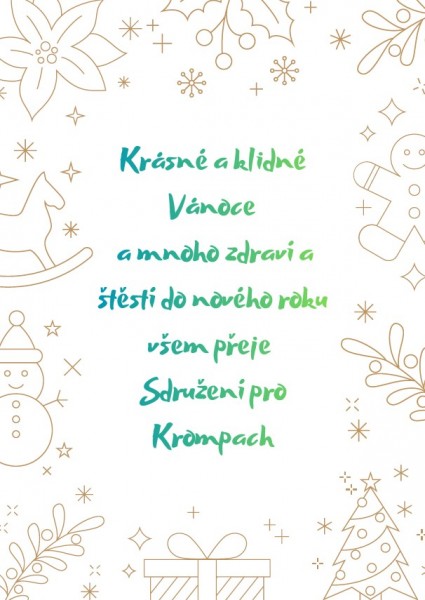 Krásné a klidné
Vánoce
a mnoho zdraví a
štěstí do nového roku
všem přeje
Sdružení pro
Krompach